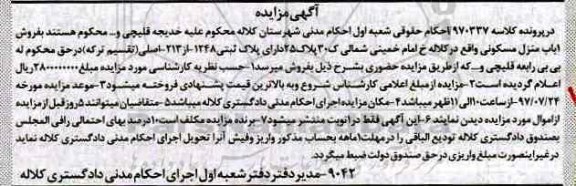 آگهی مزایده
در پرونده کلاسه ۹۷۰۳۳۷ احکام حقوقی شعبه اول احکام مدنی شهرستان کلاله محکوم علیه خدیجه قلیچی و... محکوم هستند بفروش
۱باب منزل مسکونی واقع در کلاله خ امام خمینی شمالی ک۳۰پلاک۲۵دارای پلاک ثبتی۱۲۴۸-۲۱۳-اصلی(تقسیم ترکه)در حق محکوم له
بی بی رابعه قلیچی و...که از طریق مزایده حضوری بشرح ذیل بفروش میرسد۱-حسب نظریه کارشناسی مورد مزایده مبلغ۳۸۰۰۰۰۰۰۰ریال
اعلام گردیده است۲-مزایده از مبلغ اعلامی کارشناس شروع و به بالاترین قیمت پیشنهادی فروخته میشود۳-موعد مزایده مورخه
۹۷/۰۷/۲۴-ازساعت۱۰الی۱۱ظهر میباشد۴-مکان مزایده اجرای احکام مدنی دادگستری کلاله میباشد۵-متقاضیان میتوانند۵روز قبل از مزایده
از اموال مورد مزایده دیدن نمایند۶-این آگهی فقط در۱نوبت منتشر میشود۷-برنده مزایده مکلف است۱۰درصد بهای احتمالی رافی المجلس
بصندوق دادگستری کلاله تودیع الباقی را در مهلت۱ماهه بحساب مذکور واریز وفیش آنرا تحویل اجرای احکام مدنی دادگستری کلاله نماید
در غیر اینصورت مبلغ واریزی در حق صندوق دولت ضبط میگردد.
۹۰۴۲-مدیر دفتر دفتر شعبه اول اجرای احکام مدنی دادگستری کلاله